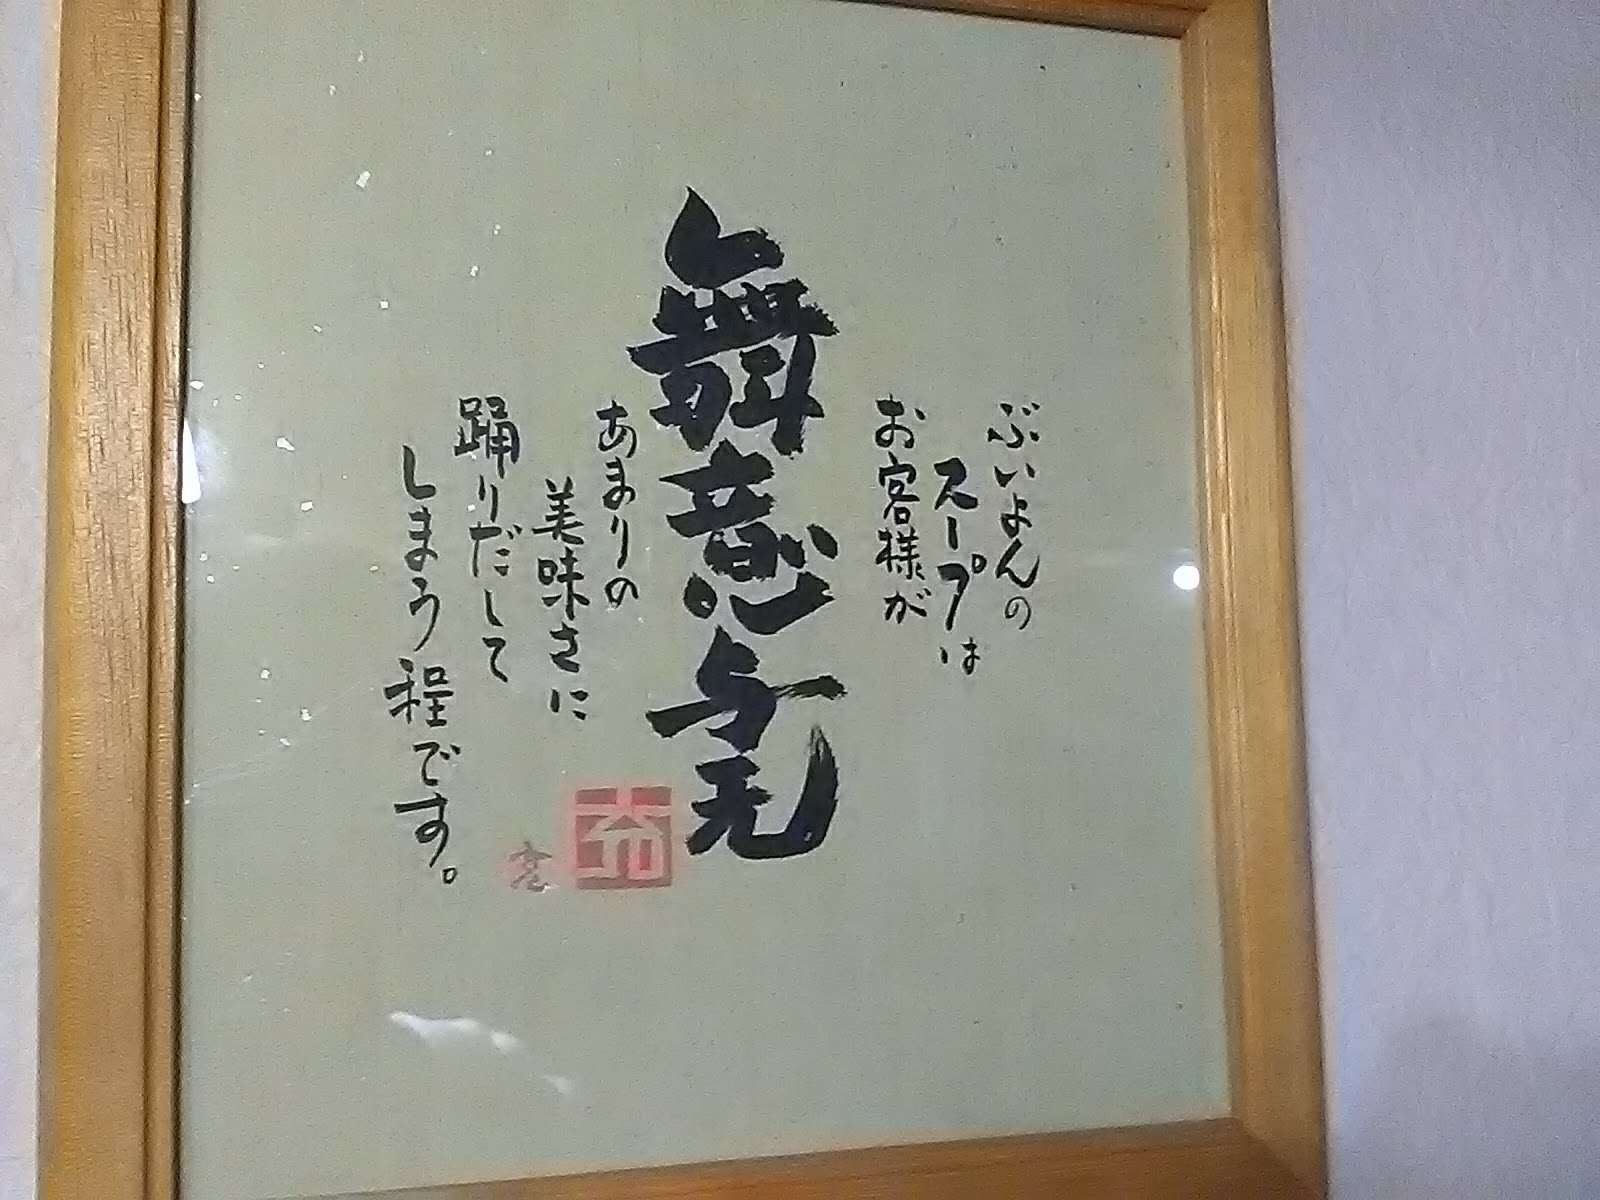 ぶいよんの
スープは
お客様が
舞意与无
あまりの
美味さに
踊りだして
しまう程です。